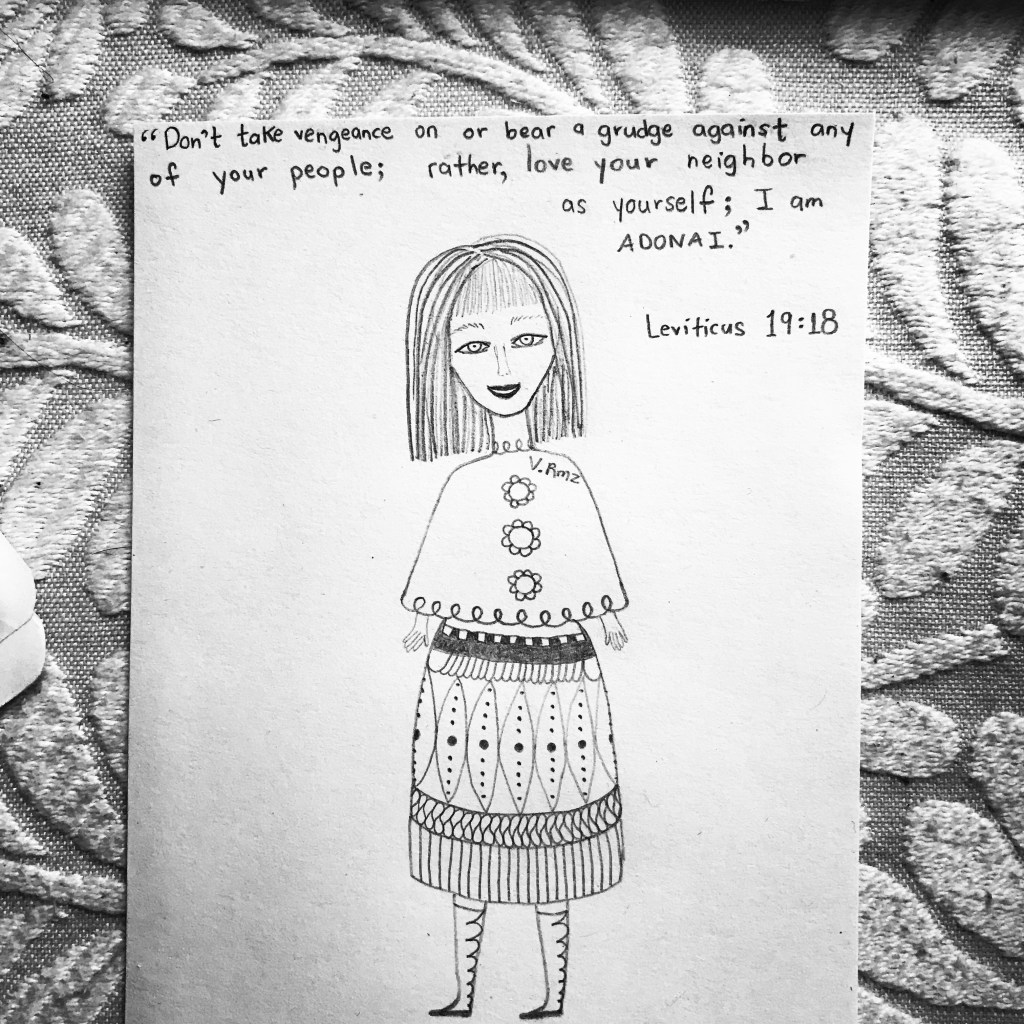 “Don't take vengeance on or bear a grudge against any
of your people; rather, love your neighbor
as yourself; I am
ADONAI.”
Leviticus 19:18
V. Rmz